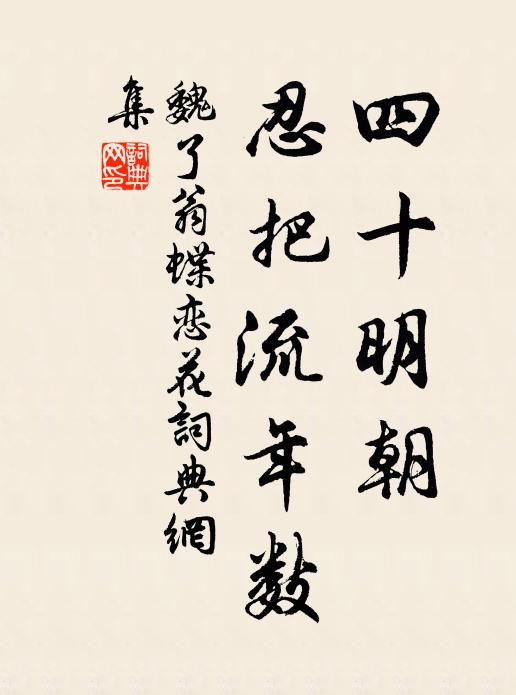 四十明朝
忍把流年数
魏了翁蝶恋花詞典網
集
詞典
网印